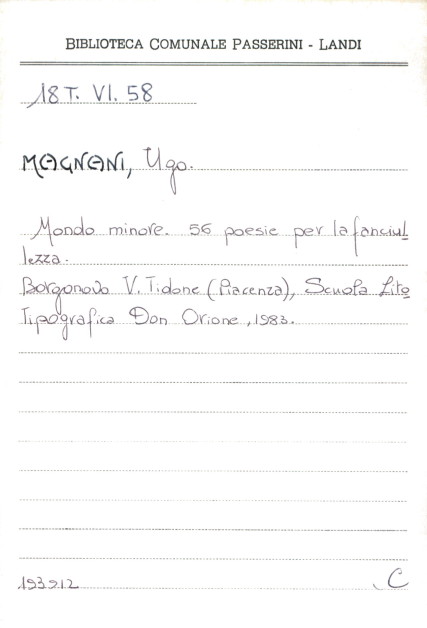 BIBLIOTECA COMUNALE PASSERINI - LANDI
18 T. VI. 58
MAGNANI, Ugo.
Mondo minore. 56 poesie per la fanciul
lezza.
Borgonovo V. Tidone (Piacenza), Scuola Lito
Tipografica Don Orione, 1983.
193912
C